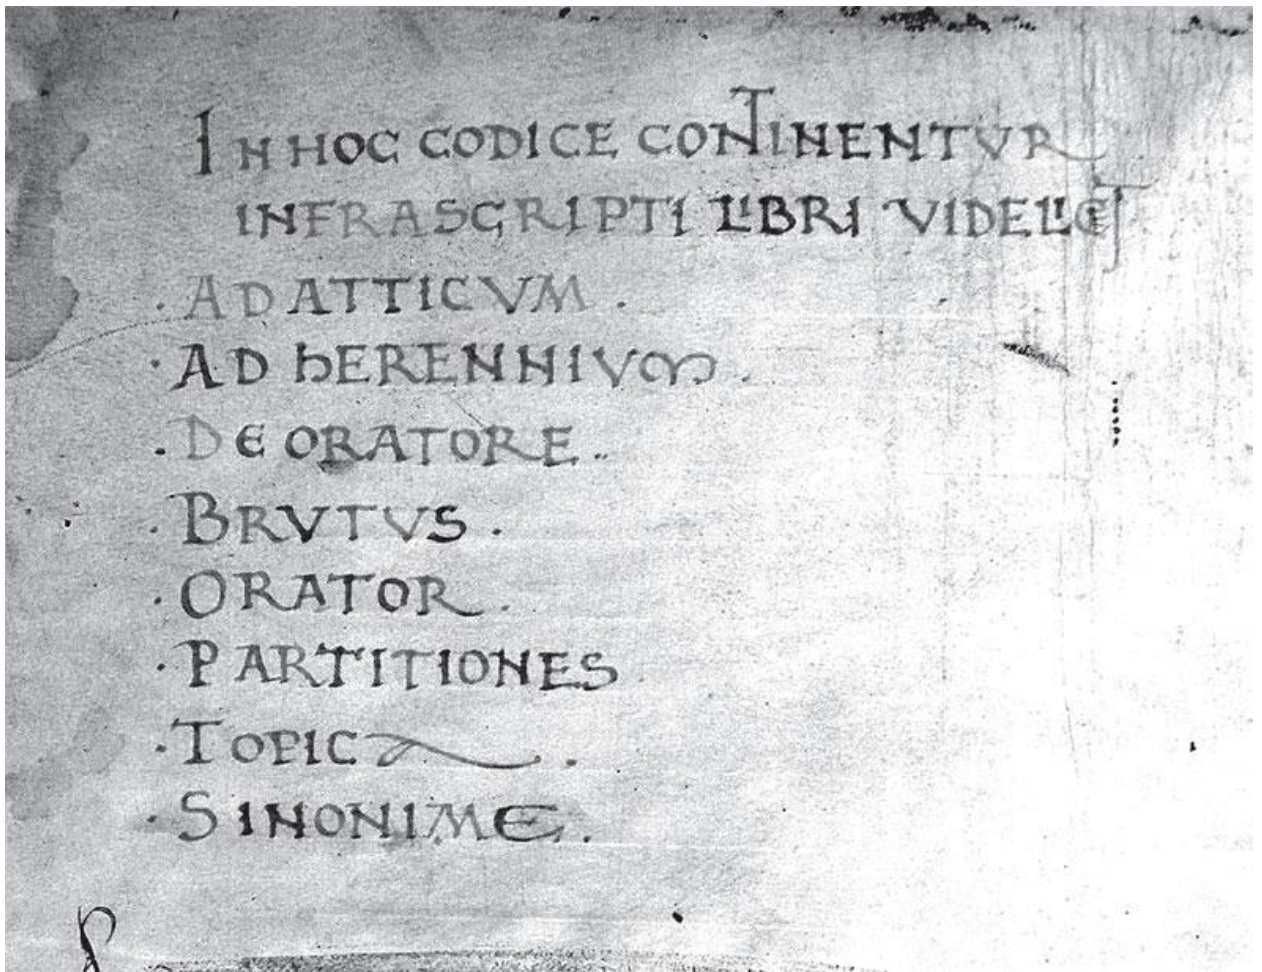 IN HOC CODICE CONTINENTVR
INFRASCRIPTI LIBRI VIDELICET
. AD ATTICVM .
. AD hERENNIVM .
. DE ORATORE ..
. BRVTVS .
. ORATOR .
. PARTITIONES
. TOPICA .
. SINONIME .